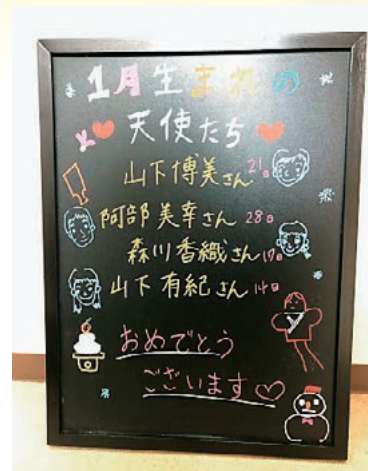 1月生まれの
天使たち
山下博美さん21日
阿部美幸さん28日
森川香織さん17日
山下有紀さん14日
おめでとう
ございます♡